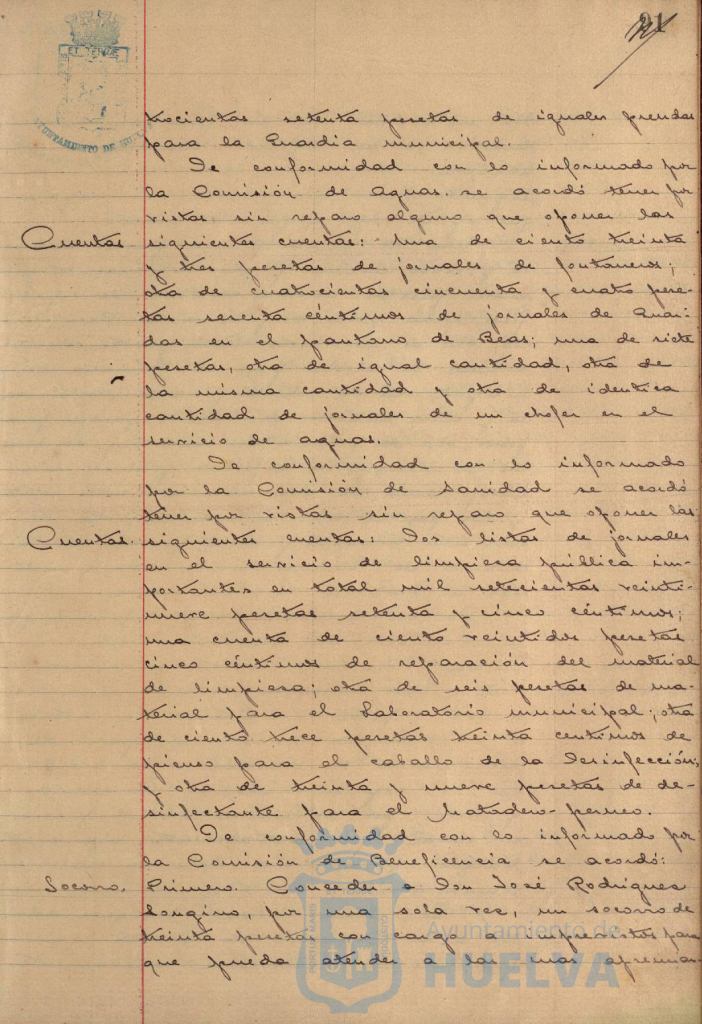 21
ET TERRÆ
AYUNTAMIENTO DE HUELVA
trocientas setenta pesetas de iguales prendas
para la Guardia municipal.
De conformidad con lo informado por
la Comisión de Aguas. se acordó tener por
vistas sin reparo alguno que oponer las
Cuentas siguientes cuentas: Una de ciento treinta
y tres pesetas de jornales de fontaneros;
otra de cuatrocientas cincuenta y cuatro pese-
tas sesenta céntimos de jornales de Guar-
das en el pantano de Beas; una de siete
pesetas, otra de igual cantidad, otra de
la misma cantidad y otra de identica
cantidad de jornales de un chofer en el
servicio de aguas.
De conformidad con lo informado
por la Comisión de Sanidad se acordó
tener por vistas sin reparo que oponer las
Cuentas. siguientes cuentas: Dos listas de jornales
en el servicio de limpiesa pública im-
portantes en total mil setecientas veinti-
nueve pesetas setenta y cinco céntimos;
una cuenta de ciento veintidos pesetas
cinco céntimos de reparación del material
de limpiesa; otra de seis pesetas de ma-
terial para el Laboratorio municipal; otra
de ciento trece pesetas treinta centimos de
pienso para el caballo de la Desinfección;
y otra de treinta y nueve pesetas de de-
sinfectante para el Matadero-perneo.
De conformidad con lo informado por
la Comisión de Beneficencia se acordó:
Socorro. Primero. Conceder a Don José Rodrigues
Longino, por una sola ves, un socorro de
treinta pesetas con cargo a imprevistos para
que pueda atender a las mas apremian-
Ayuntamiento de
HUELVA